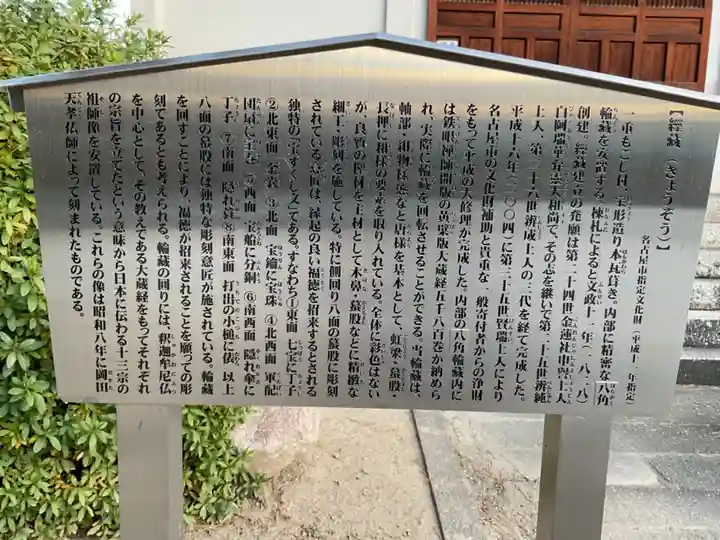 【経蔵（きょうぞう）】
名古屋市指定文化財（平成十一年指定）
一重もこし付、宝形造り本瓦葺き。内部に精密な八角
輪蔵を安置する。棟札によると文政十一年（一八二八）
創建。経蔵建立の発願は第二十四世金蓮社中誉上人
白阿瑞華専憲大和尚で、その志を継いで第二十五世辨純
上人、第二十六世辨成上人の三代を経て完成した。
平成十六年（二〇〇四）に第三十五世賢瑞上人により
名古屋市の文化財補助と貴重な一般寄付者からの浄財
をもって平成の大修理が完成した。内部の八角輪蔵内に
は鉄眼禅師開版の黄檗版大蔵経五千八百巻が納めら
れ、実際に輪蔵を回転させることができる。当輪蔵は、
軸部・組物様態など唐様を基本として、虹梁・蟇股・
長押に和様の要素を取り入れている。全体に彩色はない
が、良質の欅材を主材として木鼻・蟇股などに精緻な
細工・彫刻を施している。特に側回り八面の蟇股に彫刻
されている意匠は、縁起の良い福徳を招来するとされる
独特の「宝づくし文」である。すなわち①東面 七宝に丁子
②北東面 金嚢 ③北面 宝鑰に宝珠 ④北西面 軍配
団扇に宝巻 ⑤西面 宝船に分銅 ⑥南西面 隠れ傘に
丁子 ⑦南面 隠れ蓑 ⑧南東面 打出の小槌に俵 以上
八面の蟇股には独特な彫刻意匠が施されている。輪蔵
を回すことにより、福徳が招来されることを願っての彫
刻であるとも考えられる。輪蔵の回りには、釈迦牟尼仏
を中心として、その教えである大蔵経をもってそれぞれ
の宗旨を立てたという意味から日本に伝わる十三宗の
祖師像を安置している。これらの像は昭和八年に岡田
天孝仏師によって刻まれたものである。